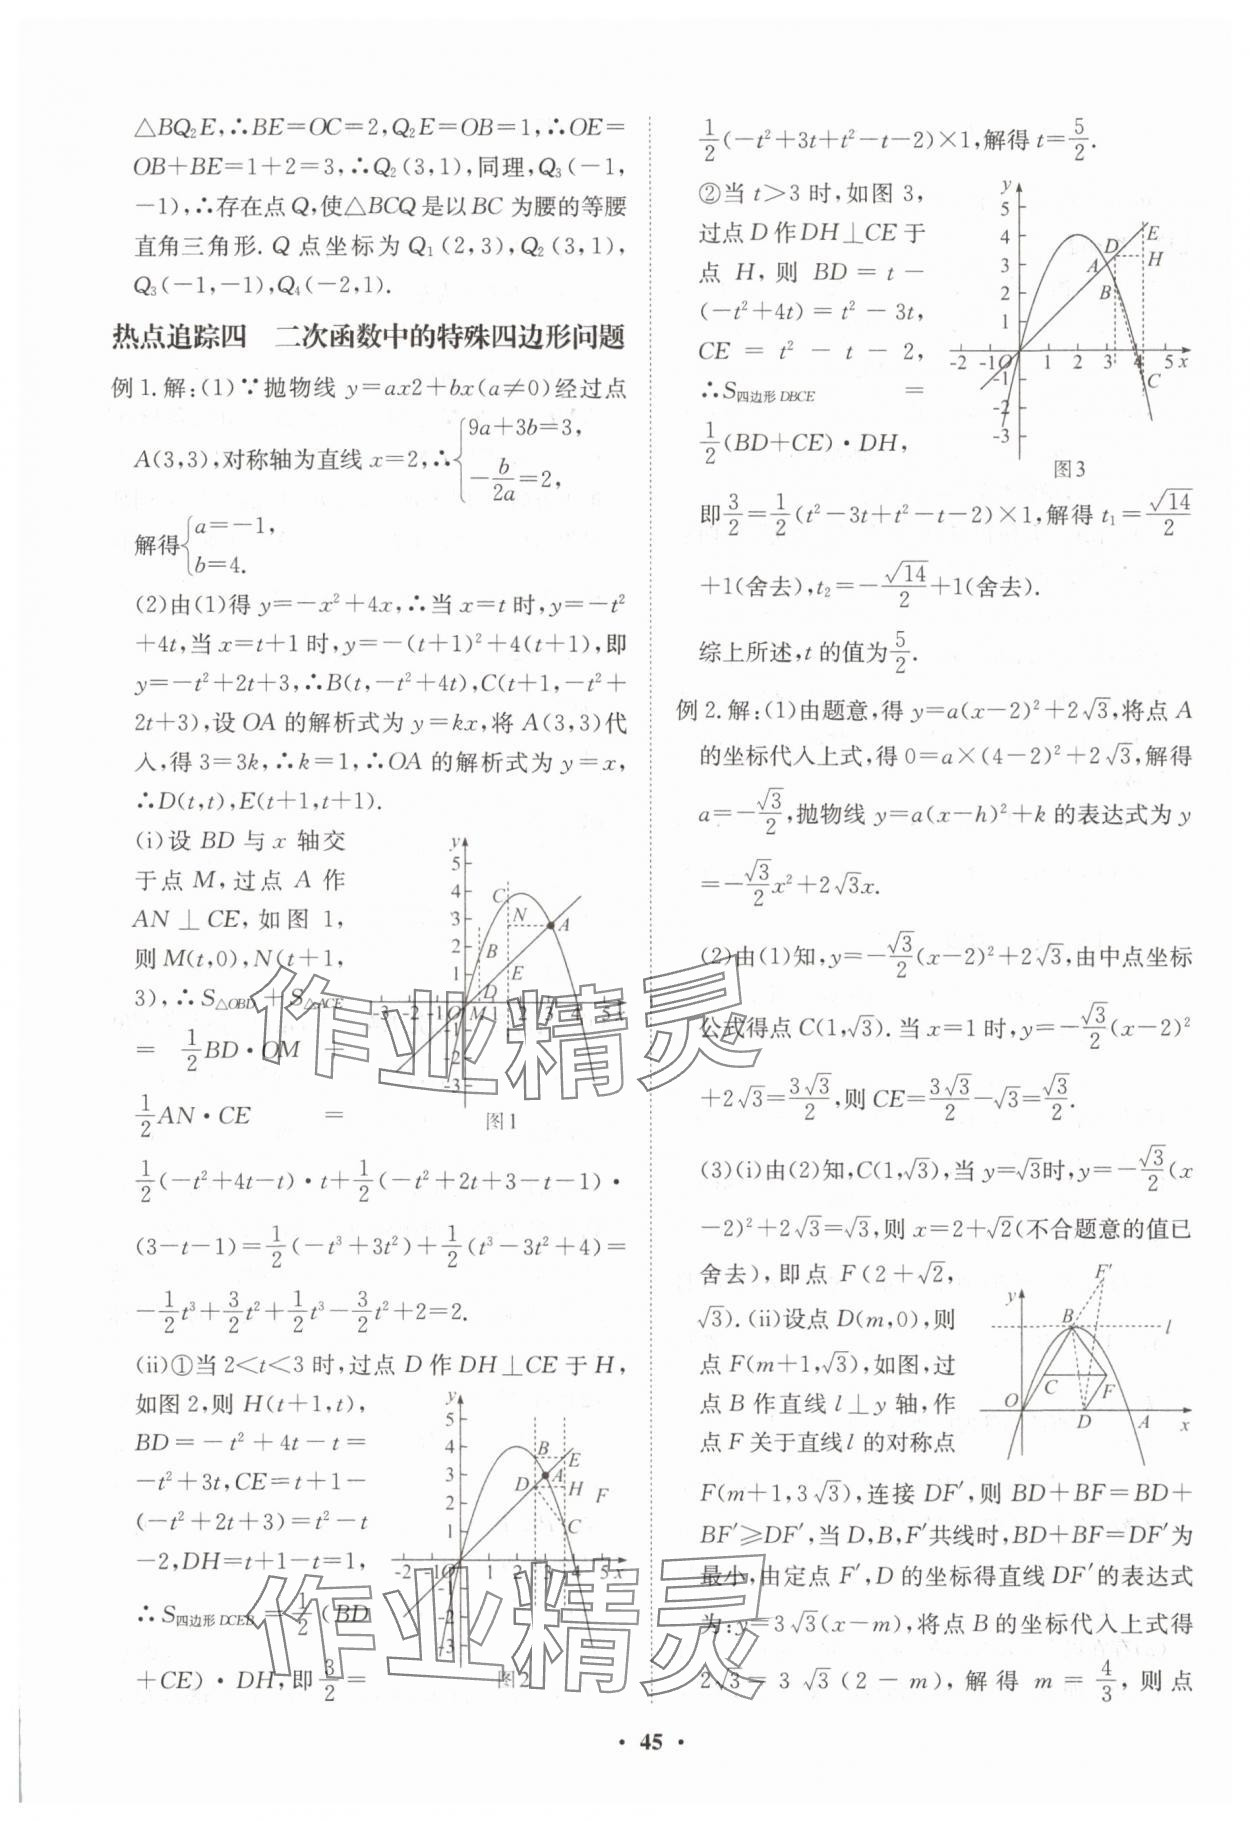 △BQ₂E,∴BE=OC=2,Q₂E=OB=1,∴OE=
OB+BE=1+2=3,∴Q₂(3,1),同理,Q₃(-1,
-1),∴存在点Q,使△BCQ是以BC为腰的等腰
直角三角形.Q点坐标为Q₁(2,3),Q₂(3,1),
Q₃(-1,-1),Q₄(-2,1).
热点追踪四 二次函数中的特殊四边形问题
例1.解:(1)∵抛物线 y=ax2+bx(a≠0)经过点
A(3,3),对称轴为直线x=2,∴{9a+3b=3, -b/2a=2,
解得{a=-1, b=4.
(2)由(1)得 y=-x²+4x,∴当x=t时,y=-t²
+4t,当x=t+1时,y=-(t+1)²+4(t+1),即
y=-t²+2t+3,∴B(t,-t²+4t),C(t+1,-t²+
2t+3),设OA的解析式为y=kx,将A(3,3)代
入,得3=3k,∴k=1,∴OA的解析式为y=x,
∴D(t,t),E(t+1,t+1).
(i)设BD与x轴交
于点M,过点A作
AN⊥CE,如图1,
则M(t,0),N(t+1,
3),∴S△OBD+S△ACE
= 1/2 BD·OM =
1/2 AN·CE =
1/2(-t²+4t-t)·t+1/2(-t²+2t+3-t-1)·
(3-t-1)=1/2(-t³+3t²)+1/2(t³-3t²+4)=
-1/2t³+3/2t²+1/2t³-3/2t²+2=2.
(ii)①当2<t<3时,过点D作DH⊥CE于H,
如图2,则H(t+1,t),
BD=-t²+4t-t=
-t²+3t,CE=t+1-
(-t²+2t+3)=t²-t
-2,DH=t+1-t=1,
∴S四边形DCEB=1/2(BD
+CE)·DH,即3/2=
图1
图2
1/2(-t²+3t+t²-t-2)×1,解得t=5/2.
②当t>3时,如图3,
过点D作DH⊥CE于
点H,则BD=t-
(-t²+4t)=t²-3t,
CE=t²-t-2,
∴S四边形DBCE =
1/2(BD+CE)·DH,
图3
即3/2=1/2(t²-3t+t²-t-2)×1,解得t₁=√14/2
+1(舍去),t₂=-√14/2+1(舍去).
综上所述,t的值为5/2.
例2.解:(1)由题意,得y=a(x-2)²+2√3,将点A
的坐标代入上式,得0=a×(4-2)²+2√3,解得
a=-√3/2,抛物线y=a(x-h)²+k的表达式为y
=-√3/2x²+2√3x.
(2)由(1)知,y=-√3/2(x-2)²+2√3,由中点坐标
公式得点C(1,√3).当x=1时,y=-√3/2(x-2)²
+2√3=3√3/2,则CE=3√3/2-√3=√3/2.
(3)(i)由(2)知,C(1,√3),当y=√3时,y=-√3/2(x
-2)²+2√3=√3,则x=2+√2(不合题意的值已
舍去),即点F(2+√2,
√3).(ii)设点D(m,0),则
点F(m+1,√3),如图,过
点B作直线l⊥y轴,作
点F关于直线l的对称点
F(m+1,3√3),连接DF′,则BD+BF=BD+
BF′≥DF′,当D,B,F′共线时,BD+BF=DF′为
最小,由定点F′,D的坐标得直线DF′的表达式
为:y=3√3(x-m),将点B的坐标代入上式得
2√3=3√3(2-m),解得m=4/3,则点
作业精灵
作业精灵
· 45 ·